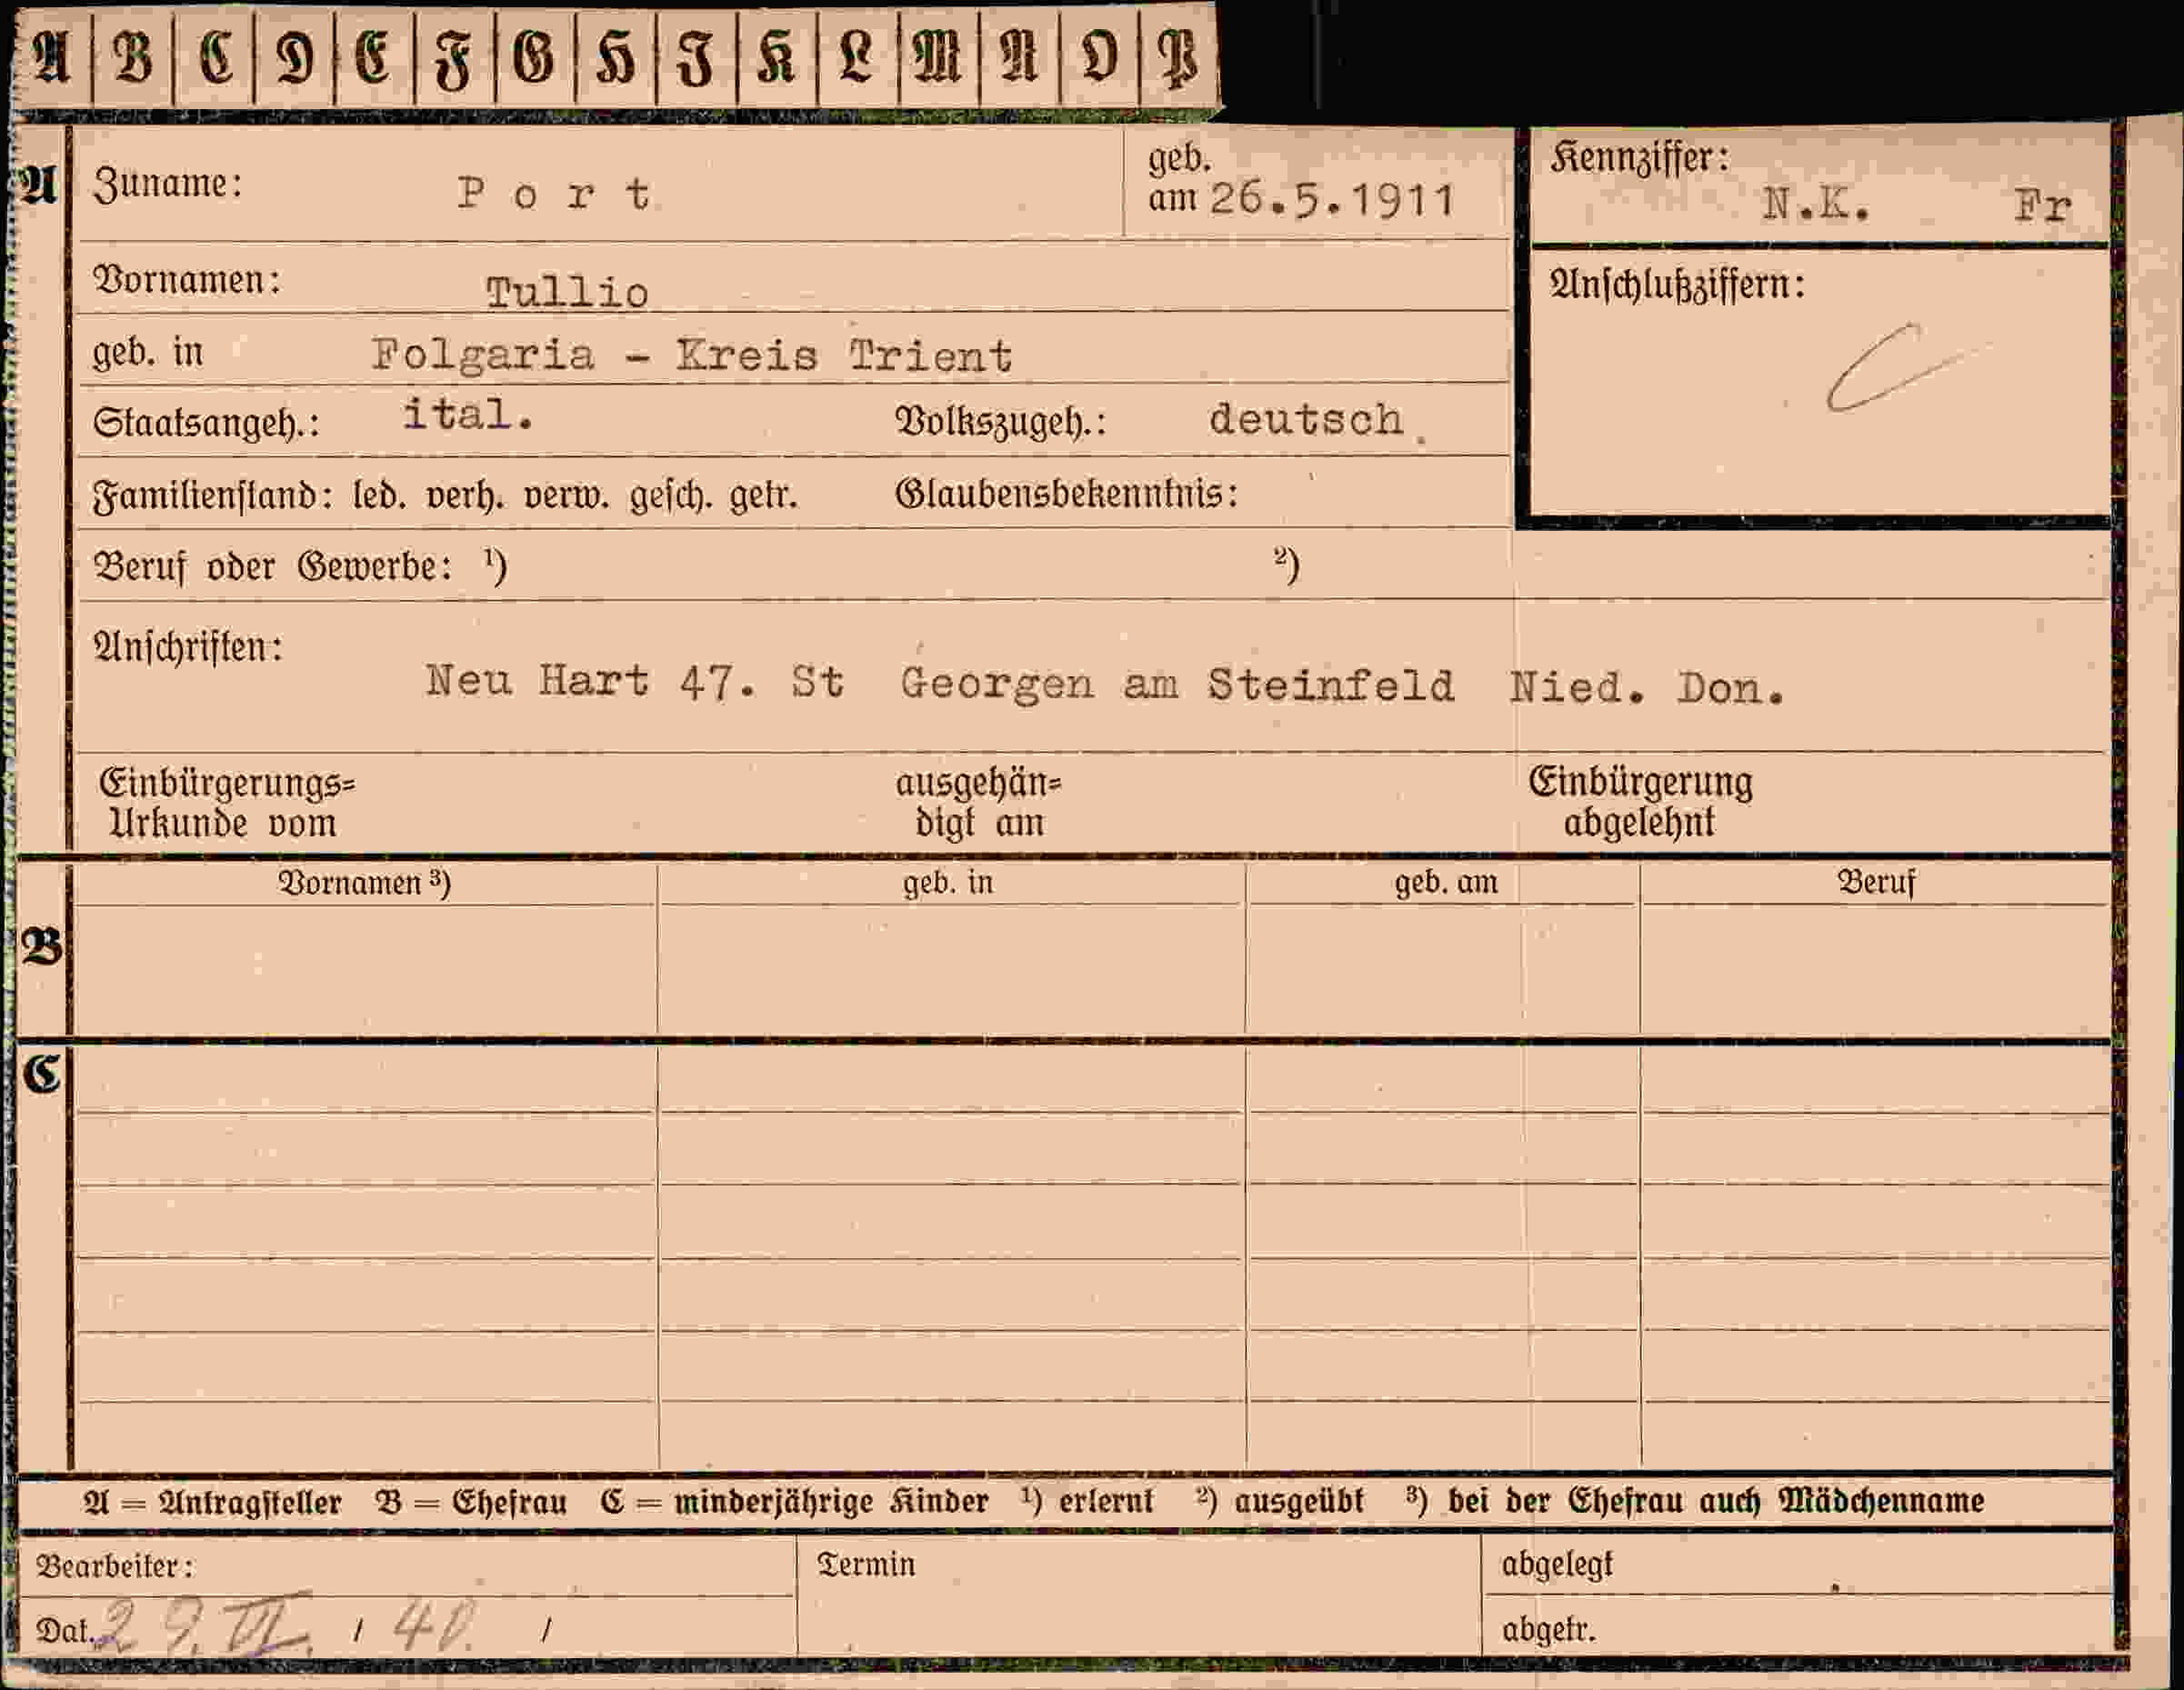 A B C D E F G H I K L M N O P
A Zuname: Port geb. am 26.5.1911 Kennziffer: N.K. Fr
Vornamen: Tullio Anschlußziffern:
geb. in Folgaria - Kreis Trient
Staatsangeh.: ital. Volkszugeh.: deutsch.
Familienstand: led. verh. verw. gesch. getr. Glaubensbekenntnis:
Beruf oder Gewerbe: ¹) ²)
Anschriften:
Neu Hart 47. St Georgen am Steinfeld Nied. Don.
Einbürgerungs= ausgehän= Einbürgerung
Urkunde vom digt am abgelehnt
Vornamen ³) geb. in geb. am Beruf
B
C
A = Antragsteller B = Ehefrau C = minderjährige Kinder ¹) erlernt ²) ausgeübt ³) bei der Ehefrau auch Mädchenname
Bearbeiter: Termin abgelegt
Dat. 29. VI. / 40. / abgetr.